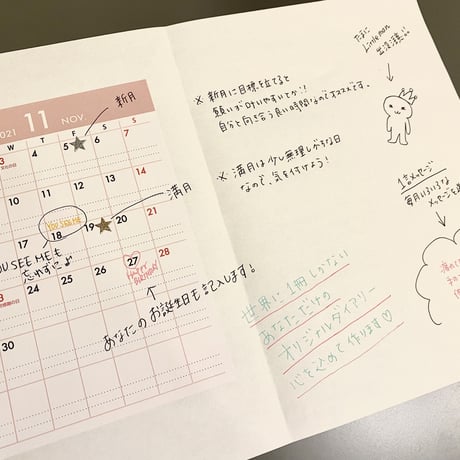 2021 11 NOV.
W T F S S
3 4 5 6 7
文化の日
10 11 12 13 14
17 18 19 20 21
YOU SEE ME
24 25 26 27 28
HAPPY BIRTHDAY
30
新月
満月
YOU SEE MEも
忘れずにょ
あなたのお誕生日も記入します!
※ 新月に目標を立てると
願いが叶いやすいとか!!
自分と向き合う良い時間なのでオススメです。
※ 満月は少し無理しがちな日
なので、気を付けよう!
世界に1冊しかない
あなただけの
オリジナルダイアリー
心を込めて作ります♡
たまに
Little man
出没注意!!
1言メッセージ
毎月いろいろな
メッセージを